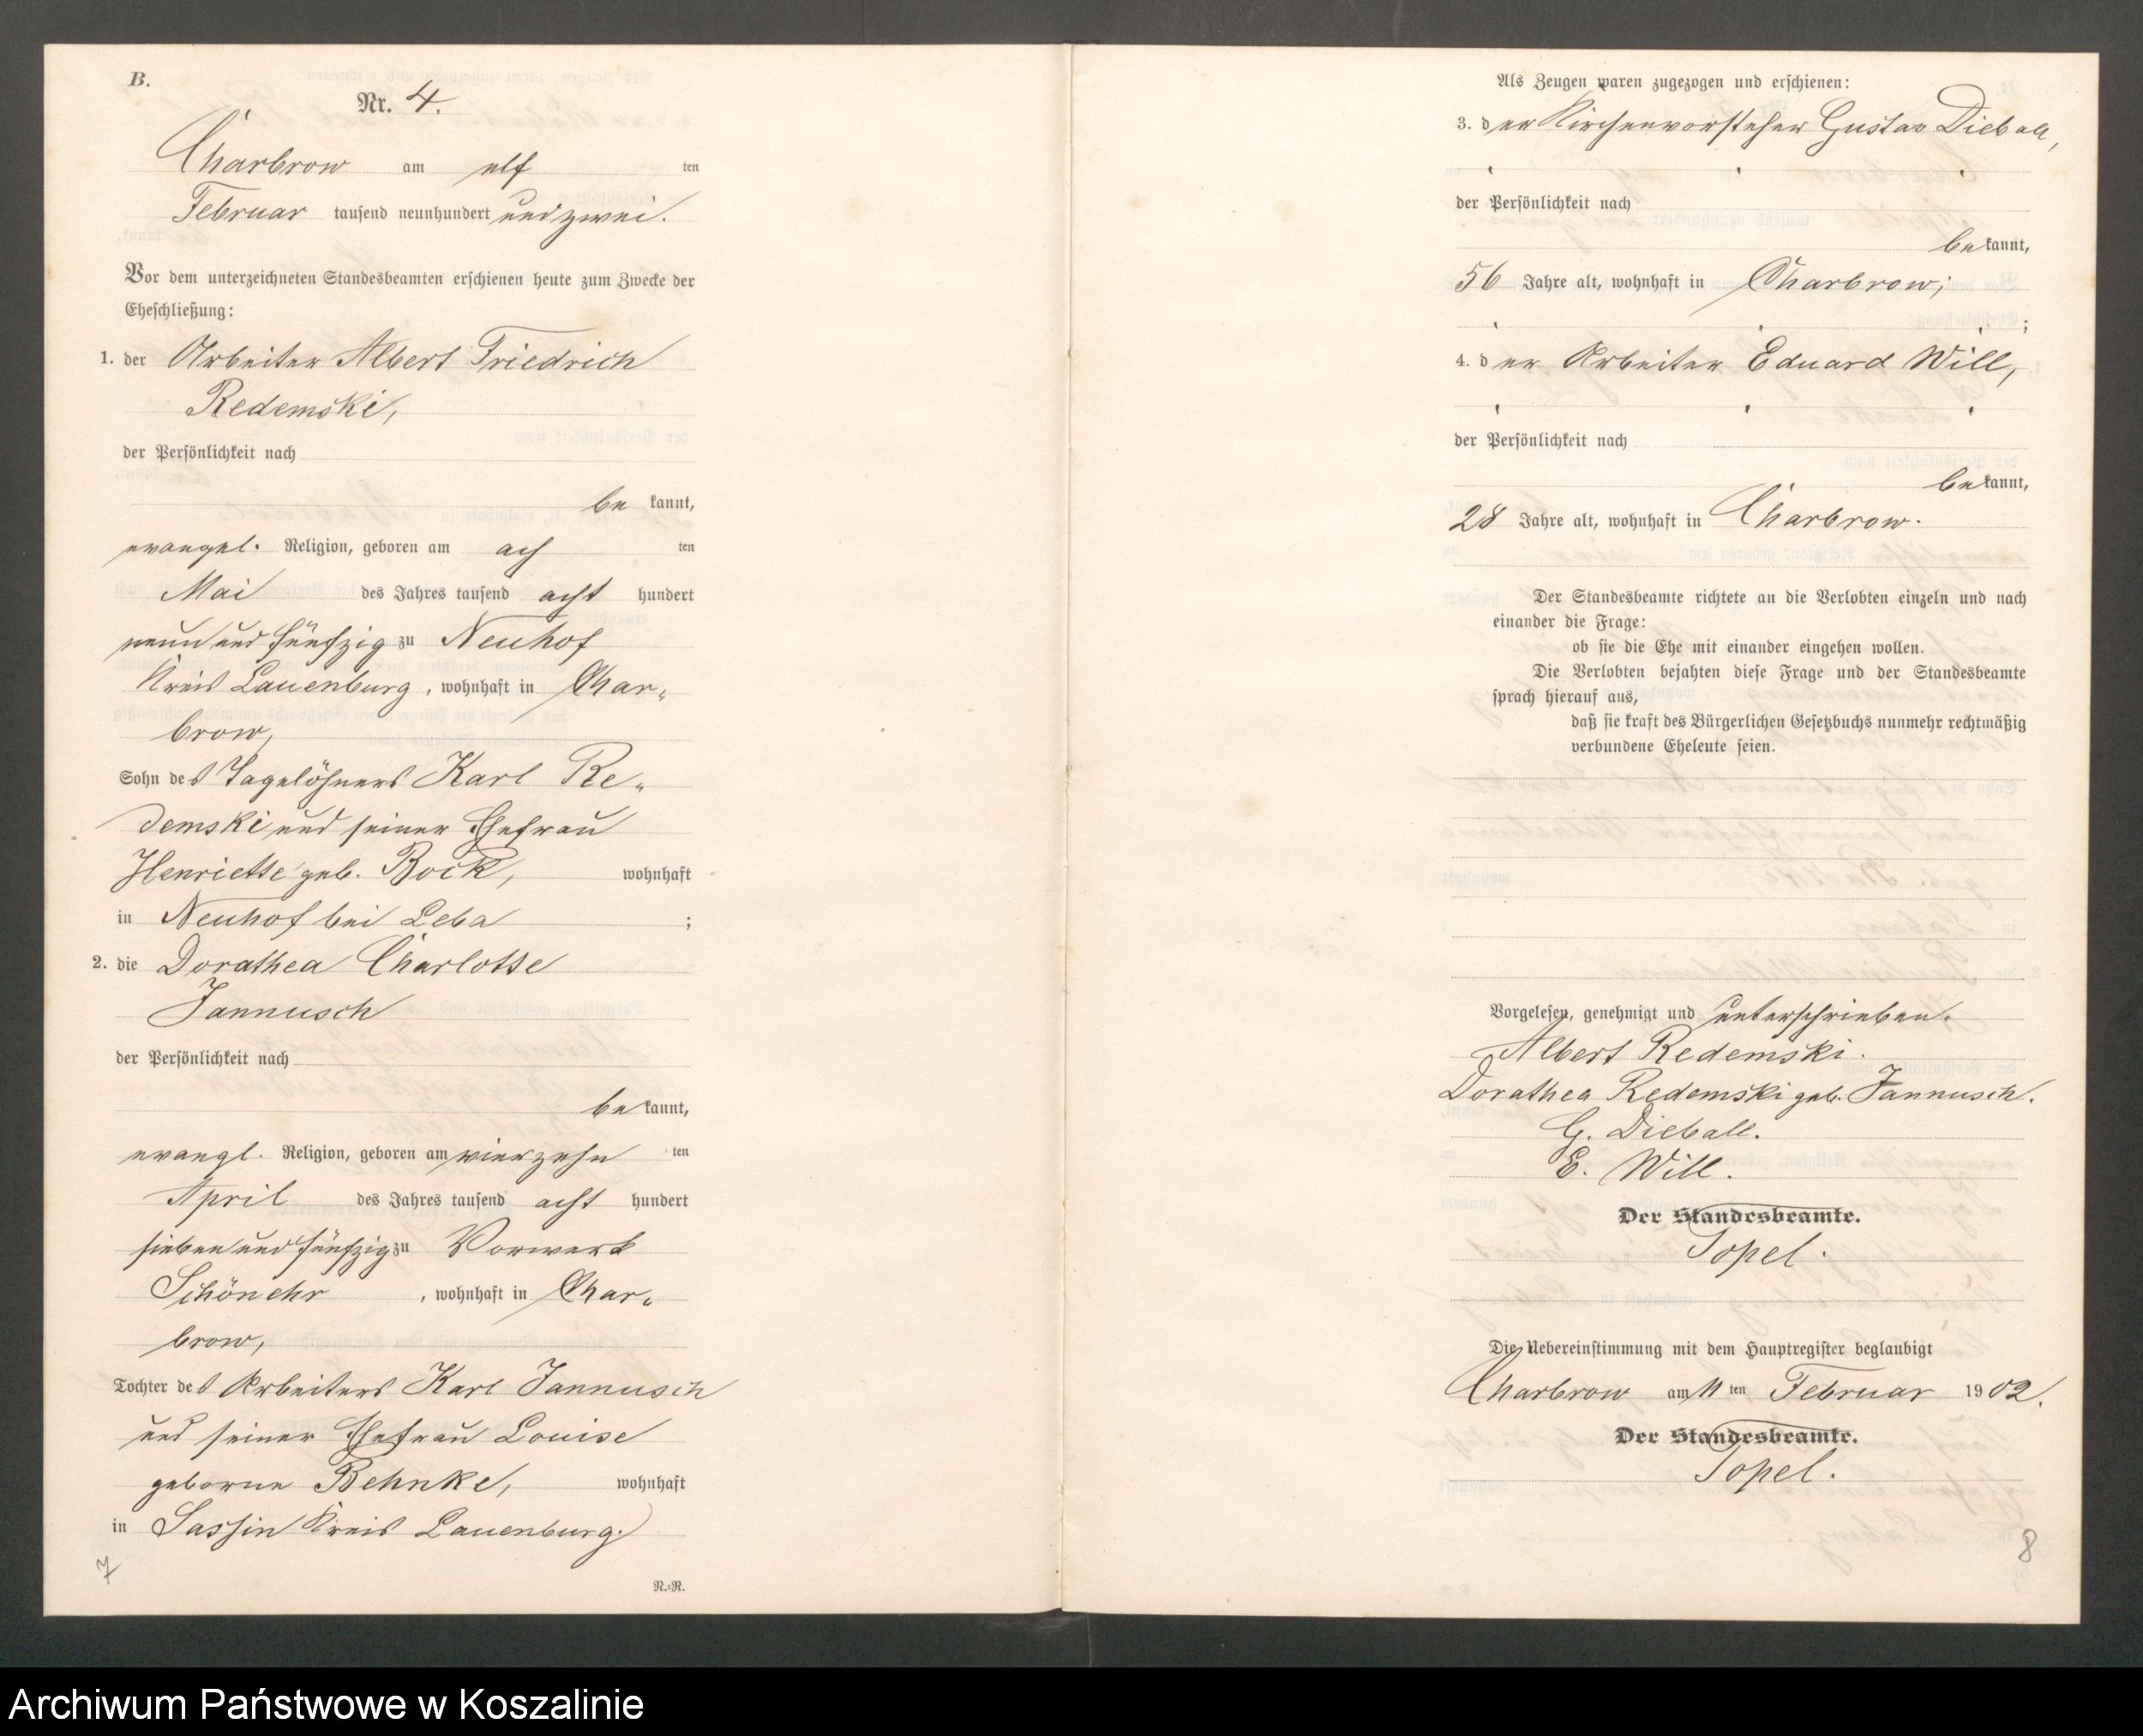 B.
Nr. 4.
Charbrow am elf ten
Februar tausend neunhundert und zwei.
Vor dem unterzeichneten Standesbeamten erschienen heute zum Zwecke der
Eheschließung:
1. der Arbeiter Albert Friedrich
Redemski,
der Persönlichkeit nach
be kannt,
evangel. Religion, geboren am ach ten
Mai des Jahres tausend acht hundert
neun und fünfzig zu Neuhof
Kreis Lauenburg, wohnhaft in Char„
brow,
Sohn des Tagelöhners Karl Re„
demski und seiner Ehefrau
Henriette geb. Bock, wohnhaft
in Neuhof bei Leba ;
2. die Dorathea Charlotte
Jannusch
der Persönlichkeit nach
be kannt,
evangl. Religion, geboren am vierzehn ten
April des Jahres tausend acht hundert
sieben und fünfzig zu Vorwerk
Schönehr, wohnhaft in Char„
brow,
Tochter des Arbeiters Karl Jannusch
und seiner Ehefrau Louise
geborne Behnke, wohnhaft
in Sassin Kreis Lauenburg.
7
N.=R.
Als Zeugen waren zugezogen und erschienen:
3. der Kirchenvorsteher Gustav Dieball,
der Persönlichkeit nach
be kannt,
56 Jahre alt, wohnhaft in Charbrow;
;
4. der Arbeiter Eduard Will,
der Persönlichkeit nach
be kannt,
28 Jahre alt, wohnhaft in Charbrow.
Der Standesbeamte richtete an die Verlobten einzeln und nach
einander die Frage:
ob sie die Ehe mit einander eingehen wollen.
Die Verlobten bejahten diese Frage und der Standesbeamte
sprach hierauf aus,
daß sie kraft des Bürgerlichen Gesetzbuchs nunmehr rechtmäßig
verbundene Eheleute seien.
Vorgelesen, genehmigt und unterschrieben.
Albert Redemski.
Dorathea Redemski geb. Jannusch.
G. Dieball.
E. Will.
Der Standesbeamte.
Topel.
Die Uebereinstimmung mit dem Hauptregister beglaubigt
Charbrow am 11 ten Februar 1902.
Der Standesbeamte.
Topel.
8
Archiwum Państwowe w Koszalinie